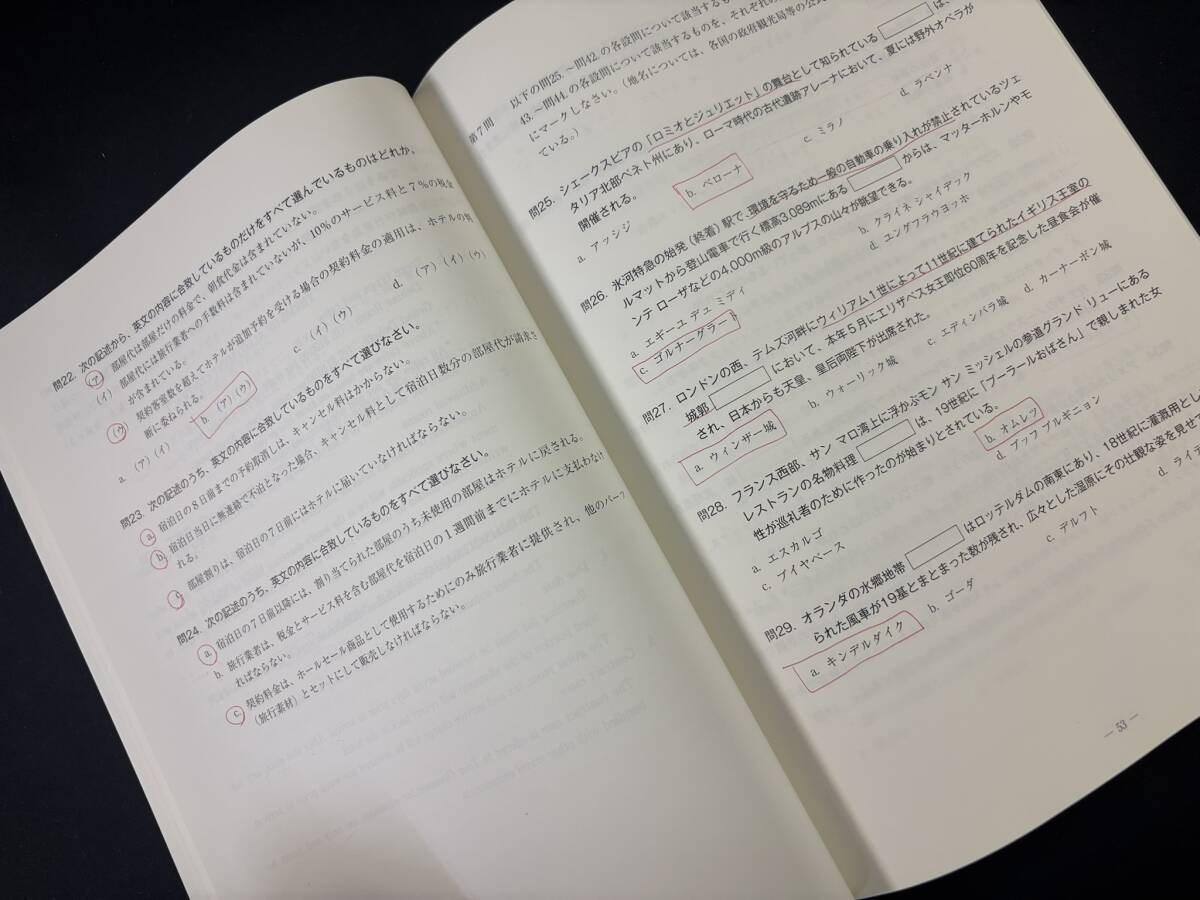 問22. 次の記述から、英文の内容に合致しているものだけをすべて選んでいるものはどれか。
(ア) 部屋代は部屋だけの料金で、朝食代金は含まれていない。
(イ) 部屋代には旅行業者への手数料は含まれていないが、10%のサービス料と7%の税金
が含まれている。
(ウ) 契約客室数を超えてホテルが追加予約を受ける場合の契約料金の適用は、ホテルの判
断に委ねられる。
a. (ア)(イ) b. (ア)(ウ) c. (イ)(ウ) d. (ア)(イ)(ウ)
問23. 次の記述のうち、英文の内容に合致しているものをすべて選びなさい。
a. 宿泊日の8日前までの予約取消しは、キャンセル料はかからない。
b. 宿泊日当日に無連絡で不泊となった場合、キャンセル料として宿泊日数分の部屋代が請求さ
れる。
c. 部屋割りは、宿泊日の7日前にはホテルに届いていなければならない。
問24. 次の記述のうち、英文の内容に合致しているものをすべて選びなさい。
a. 宿泊日の7日前以降には、割り当てられた部屋のうち未使用の部屋はホテルに戻される。
b. 旅行業者は、税金とサービス料を含む部屋代を宿泊日の1週間前までにホテルに支払わなけ
ればならない。
c. 契約料金は、ホールセール商品として使用するためにのみ旅行業者に提供され、他のパーツ
(旅行素材)とセットにして販売しなければならない。
第7問 以下の問25.~問42.の各設問について該当するも
43.~問44.の各設問について該当するものを、それぞれの
にマークしなさい。(地名については、各国の政府観光局等の公式
ている。)
問25. シェークスピアの「ロミオとジュリエット」の舞台として知られている は、
タリア北部ベネト州にあり、ローマ時代の古代遺跡アレーナにおいて、夏には野外オペラが
開催される。
a. アッシジ b. ベローナ c. ミラノ d. ラベンナ
問26. 氷河特急の始発(終着)駅で、環境を守るため一般の自動車の乗り入れが禁止されているツェ
ルマットから登山電車で行く標高3,089mにある からは、マッターホルンやモ
ンテ ローザなどの4,000m級のアルプスの山々が眺望できる。
a. エギーユ デュ ミディ b. クライネ シャイデック
c. ゴルナーグラート d. ユングフラウヨッホ
問27. ロンドンの西、テムズ河畔にウィリアム1世によって11世紀に建てられたイギリス王室の
城郭 において、本年5月にエリザベス女王即位60周年を記念した昼食会が催
され、日本からも天皇、皇后両陛下が出席された。
a. ウィンザー城 b. ウォーリック城 c. エディンバラ城 d. カーナーボン城
問28. フランス西部、サン マロ湾上に浮かぶモン サン ミッシェルの参道グランド リューにある
レストランの名物料理 は、19世紀に「プーラールおばさん」で親しまれた女
性が巡礼者のために作ったのが始まりとされている。
a. エスカルゴ b. オムレツ
c. ブイヤベース d. ブッフ ブルギニョン
問29. オランダの水郷地帯 はロッテルダムの南東にあり、18世紀に灌漑用とし
られた風車が19基とまとまった数が残され、広々とした湿原にその壮観な姿を見せ
a. キンデルダイク b. ゴーダ c. デルフト d. ライデ
— 53 —